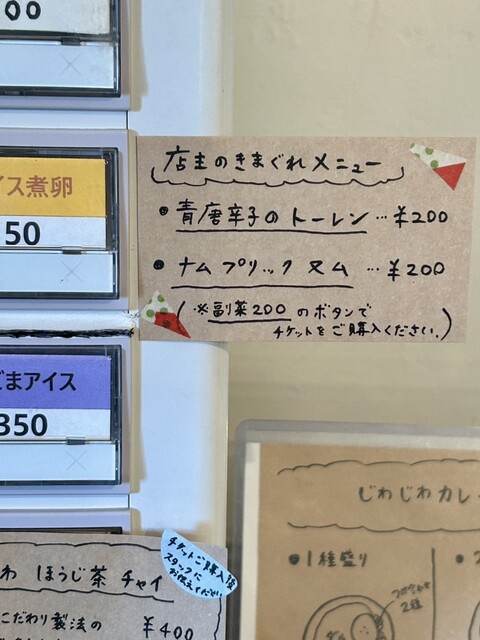 00
店主のきまぐれメニュー
・青唐辛子のトーレン…¥200
・ナムプリックヌム…¥200
(※副菜200のボタンで
チケットをご購入ください。)
イス煮卵
50
ごまアイス
350
じわじわカレー
・1種盛り
つけ合わせ
2種
チケットご購入後
スタッフに
お伝えください
わ ほうじ茶 チャイ
こだわり製法の
¥400